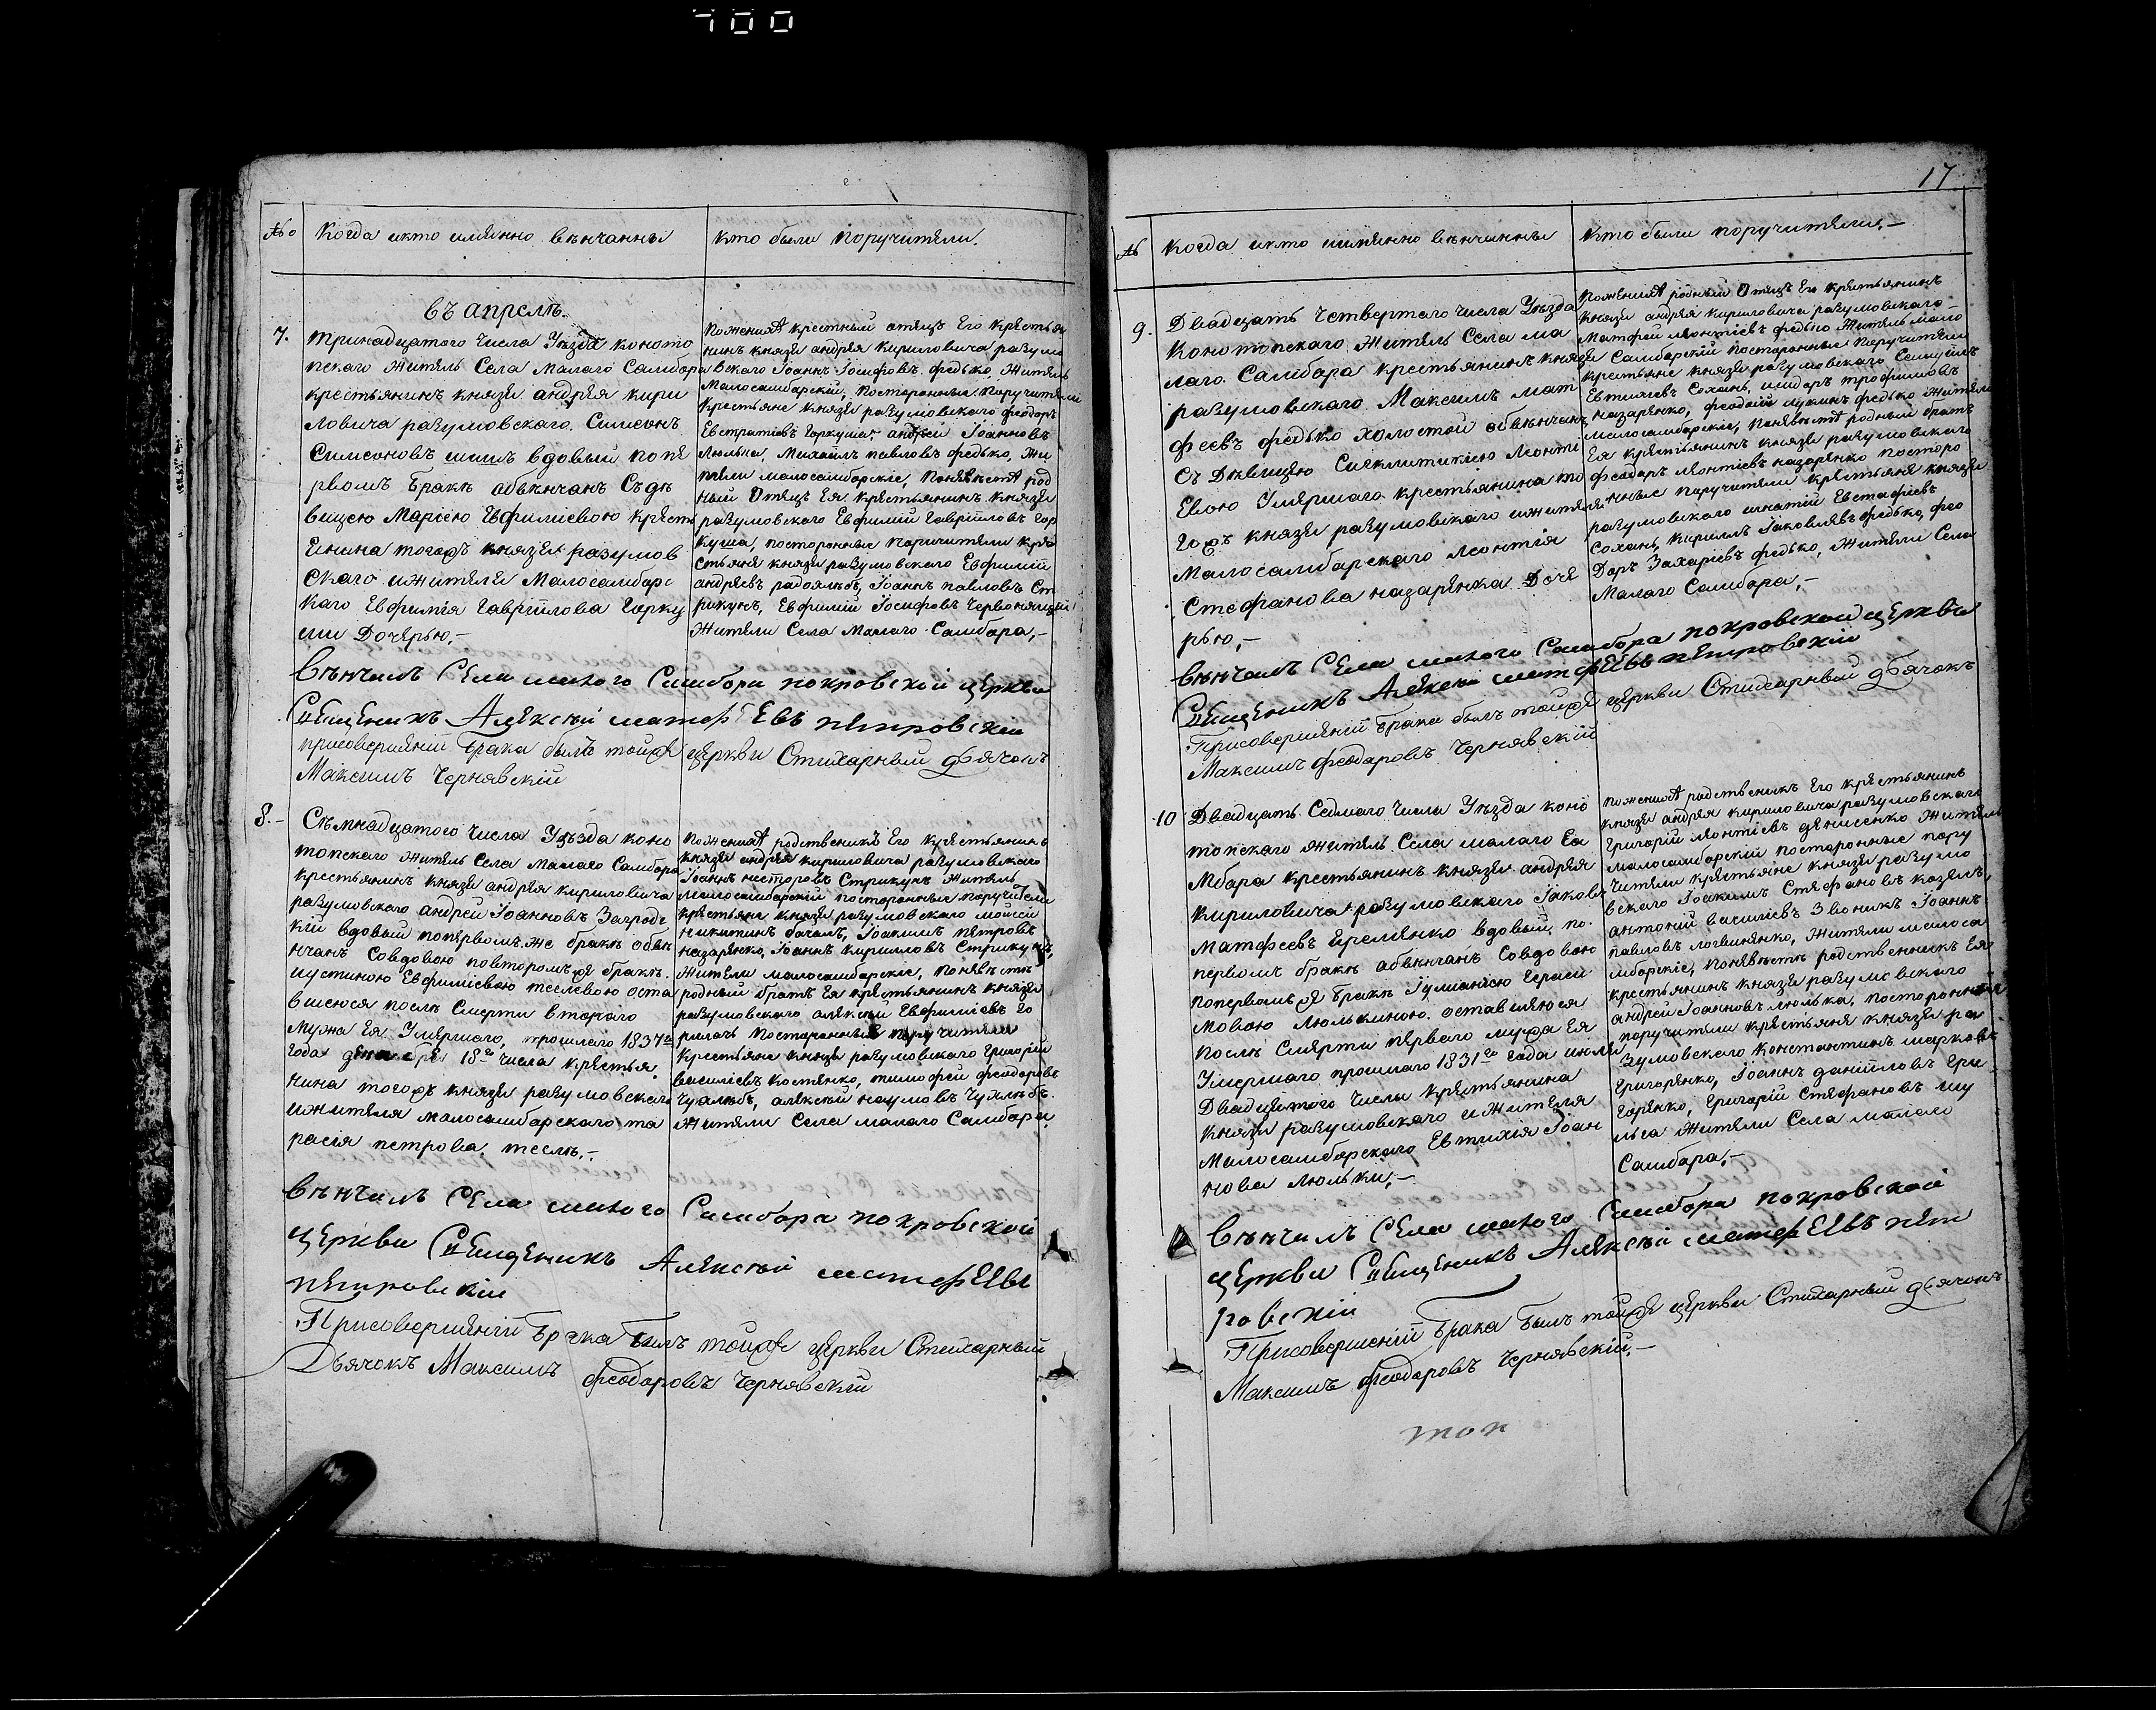 700
№
Когда икто имянно вѣнчанны
кто были поручители.
въ апрелѣ.
7.
тринадцатого Числа Уѣзда коното
пскаго житель Села Малаго Самбора
крестьянинъ князя андрея кири
ловича разумовскаго. Симеонъ
Симеоновъ вдовый попе
рвомъ бракѣ обвѣнчан Съдѣ
вицею Маріею Евфиміевою крест
янина тогожъ князя разумов
скаго ижителя Малосамбарс
каго Евфимія Гавріилова Горку
ши Дочерью,-
пожених крестный отецъ Его крестья
нинъ князя андрея кириловича разумо
вскаго Іоаннъ Іосифовъ федько, Житель
Малосамбарскій, посторонные поручители
крестьяне князя разумовскаго феодоръ
Евстратіевъ Горкуша, андрей Іоанновъ
Люлька, Михаилъ павловъ федько, жи
тели малосамбарскіе, поневѣстѣ род
ный Отецъ Ея крестьянинъ князя
разумовскаго Евфимій Гавріиловъ Гор
куша, посторонные поричители кре
стьяне князя разумовскаго Евфимій
андреевъ Іоаннъ павловъ Ст
рикунъ, Евфимій Іосифовъ
Жители Села Малаго Самбора,-
вѣнчалъ Села малого Самбора покровской церкви
Священикъ Алексѣй матфеевъ петровскій
присовершеніи брака былъ тойже церкви Стихарный дьячокъ
Максимъ Чернявскій
8.-
Семнадцатого Числа Уѣзда коно
топскаго житель Села Малаго Самбора
крестьянинъ князя андрея кириловича
разумовскаго андрей Іоанновъ Загродс
кій вдовый попервомъже бракѣ обвѣ
нчан Совдовою повторомъже бракѣ
иустиною Евфиміевою теслевою оста
вшеюся послѣ Смерти втораго
Мужа Ея Умершаго, прошлаго 1837го
года декабря 18го числа крестья
нина тогожъ князя разумовскаго
ижителя малосамбарскаго та
расія петрова теслѣ.-
пожених родственикъ Его крестьянинъ
князя андрея кириловича разумовскаго
Іоаннъ несторовъ Стрикунъ житель
малосамбарскій посторонные поручители
крестьяне князя разумовскаго моисей
никитинъ Іоакимъ петровъ
назаренко, Іоаннъ кириловъ Стрикунъ,
жители малосамбарскіе, поневѣстѣ
родный братъ Ея крестьянинъ князя
разумовскаго алексѣй Евфиміевъ Го
рилачъ посторонные поручители
крестьяне князя разумовскаго Григорій
василіевъ костенко, тимофей феодоровъ
Чухлѣбъ, алексѣй наумовъ Чухлѣбъ
жители Села малаго Самбора
вѣнчалъ Села малого Самбора покровской
церкви Священикъ Алексѣй матфеевъ
петровскій
Присовершеніи брака былъ тойже церкви Стихарный
Дьячокъ Максимъ феодоровъ Чернявскій
17
№
когда икто имянно вѣнчанны
кто были поручители,-
9.
Двадцать Четвертаго Числа Уѣзда
Конотопскаго житель Села ма
лаго. Самбора крестьянинъ князя
разумовскаго. Максимъ мат
феевъ федько холостой обвѣнчанъ
Съ Дѣвицею Сиклитикіею Леонті
Евою Умершаго крестьянина то
гожъ князя разумовскаго ижителя
Малосамбарскаго Леонтія
Стефанова назаренка Доче
рью,-
пожених родный Отецъ Его крестьянинъ
князя андрея кириловича разумовскаго
Матфей Леонтіевъ федько житель мало
Самбарскій посторонные поручители
крестьяне князя разумовскаго Самуилъ
Евтихіевъ Соханъ, исидоръ трофимовъ
назаренко, феодосій лукинъ федько Жители
малосамбарскіе, поневѣстѣ родный братъ
Ея крестьянинъ князя разумовскаго
феодоръ леонтіевъ назаренко посторо
нные поручители крестьяне князя
разумовскаго игнатій Евстафіевъ
Соханъ, кирилъ Іаковлевъ федько, фео
доръ Захаріевъ федько, жители Села
Малаго Самбора,-
вѣнчалъ Села малого Самбора покровской церкви
Священикъ Алексѣй матфеевъ петровскій
Присовершеніи брака былъ тойже церкви Стихарный дьячокъ
Максимъ феодоровъ Чернявскій
10
Двадцать Седмаго Числа Уѣзда коно
топскаго житель Села малаго Са
мбара крестьянинъ князя андрея
кириловича разумовскаго Іаковъ
матфеевъ Еременко вдовый по
первомъ бракѣ обвѣнчанъ Совдовою
попервомъже бракѣ Іуліаніею Гераси
мовою Люлькиною. оставшеюся
послѣ Смерти перваго мужа Ея
Умершаго прошлаго 1831го года июля
Двадцятого Числа крестьянина
князя разумовскаго ижителя
Малосамбарскаго Евтихія Іоан
нова Люльки,-
пожених родственикъ Его крестьянинъ
князя андрея кириловича разумовскаго
Григорій леонтіевъ денисенко житель
малосамбарскій посторонные пору
чители крестьяне князя разумо
вскаго Іоакимъ Стефановъ козелъ,
антоній василіевъ Звоникъ Іоаннъ
павловъ логвиненко, жители малоса
мборскіе, поневѣстѣ родственникъ Ея
крестьянинъ князя разумовскаго
андрей Іоанновъ люлька, посторонные
поручители крестьяне князя ра
зумовскаго константинъ марковъ
Григоренко, Іоаннъ даніиловъ Гри
горенко, Григорій Стефановъ шу
льга жители Села малаго
Самбора,-
вѣнчалъ Села малого Самбора покровской
церкви Священикъ Алексѣй матфеевъ пет
ровскій
Присовершеніи брака былъ тойже церкви Стихарный дьячокъ
Максимъ феодоровъ Чернявскій,-
топ